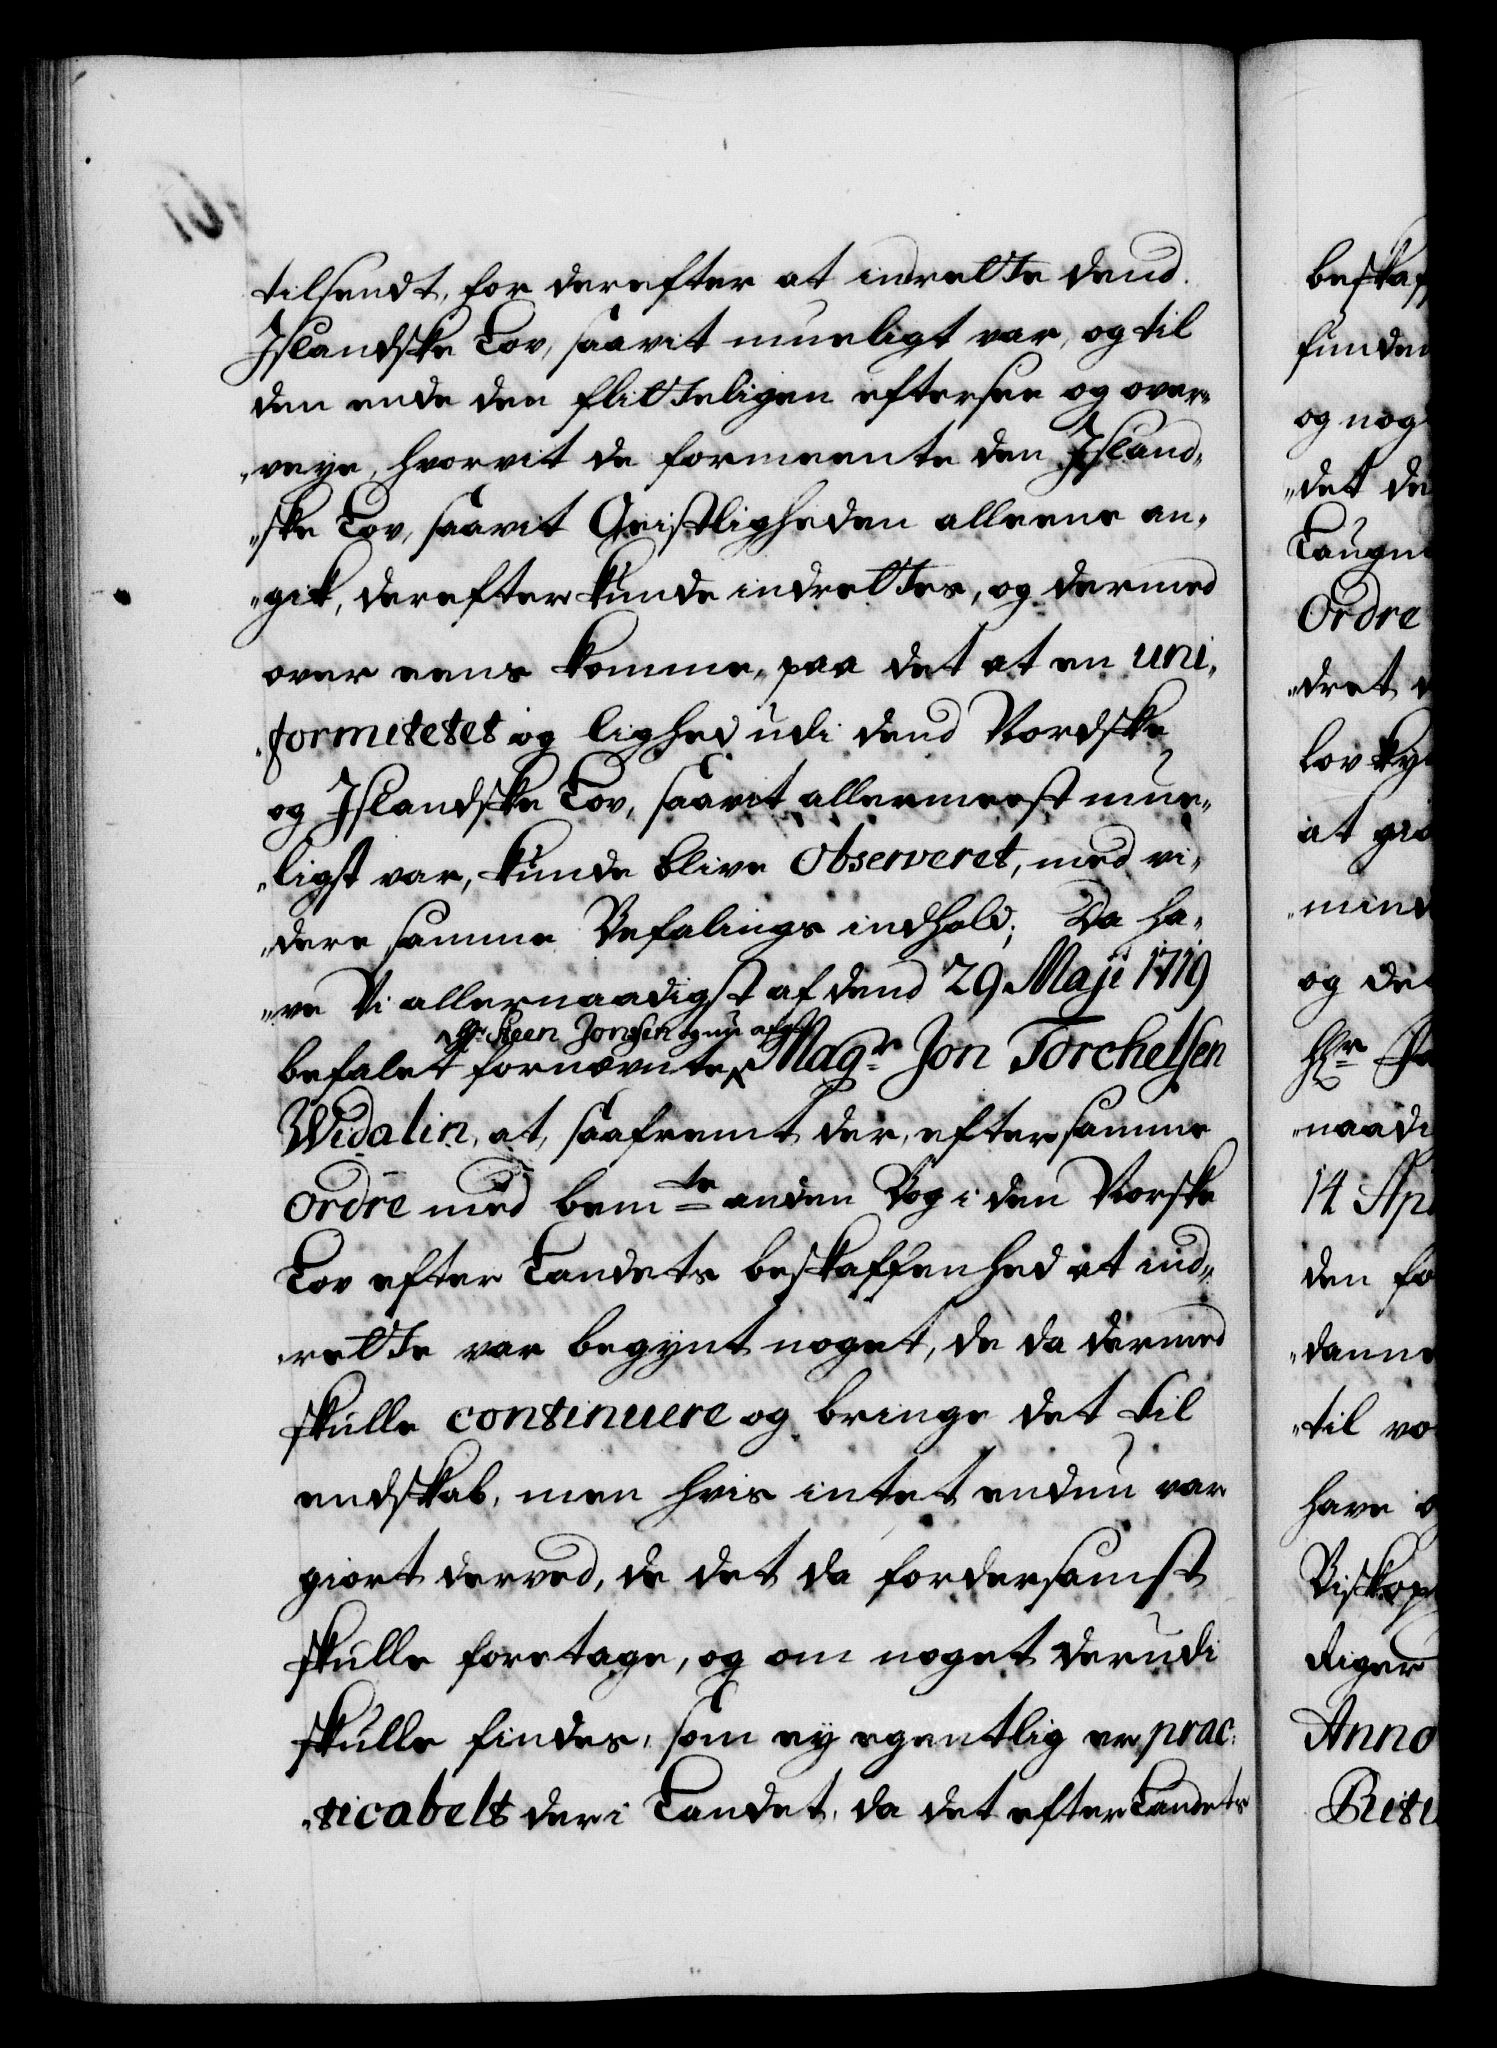 tilsendt, for derefter at indrette dend
Jslandske Lov, saavit mueligt var, og til
den ende den flitteligen eftersee og over„
„veye, hvorvit de formeente den Jsland„
„ske Lov, saavit Geistligheden alleene an„
„gik, derefter kunde indrettes, og dermed
over eens komme, paa det at en uni„
„formitetet og lighed udi dend Nordske
og Jslandske Lov, saavit allermeest mue„
„ligst var, kunde blive observeret, med vi„
„dere samme Befalings indhold; Da ha„
„ve Vi allernaadigst af dend 29 Maji 1719
Mr Steen Jonsen og nu afgl.
befalet fornævnte Magr Jon Torchelsen
Widalin, at, saafremt der, efter samme
ordre med bemte anden Bog i den Norske
Lov efter Landets beskaffenhed at ind„
„rette var begynt noget, de da dermed
skulle continuere og bringe det til
endskab, men hvis intet endnu var
giort derved, de det da fordersamst
skulle foretage, og om noget derudi
skulle findes, som ey egentlig er prac„
„ticabelt der i Landet, da det efter Landets
beskaf
funden
og nog
„det de
Laugm
Ordre
„dret
lov ky
at giø
„mind
og det
Hr
„naadi
14 Apr
den fo
„danne
„til vo
have
Biskop
diger
Anno
Ritu